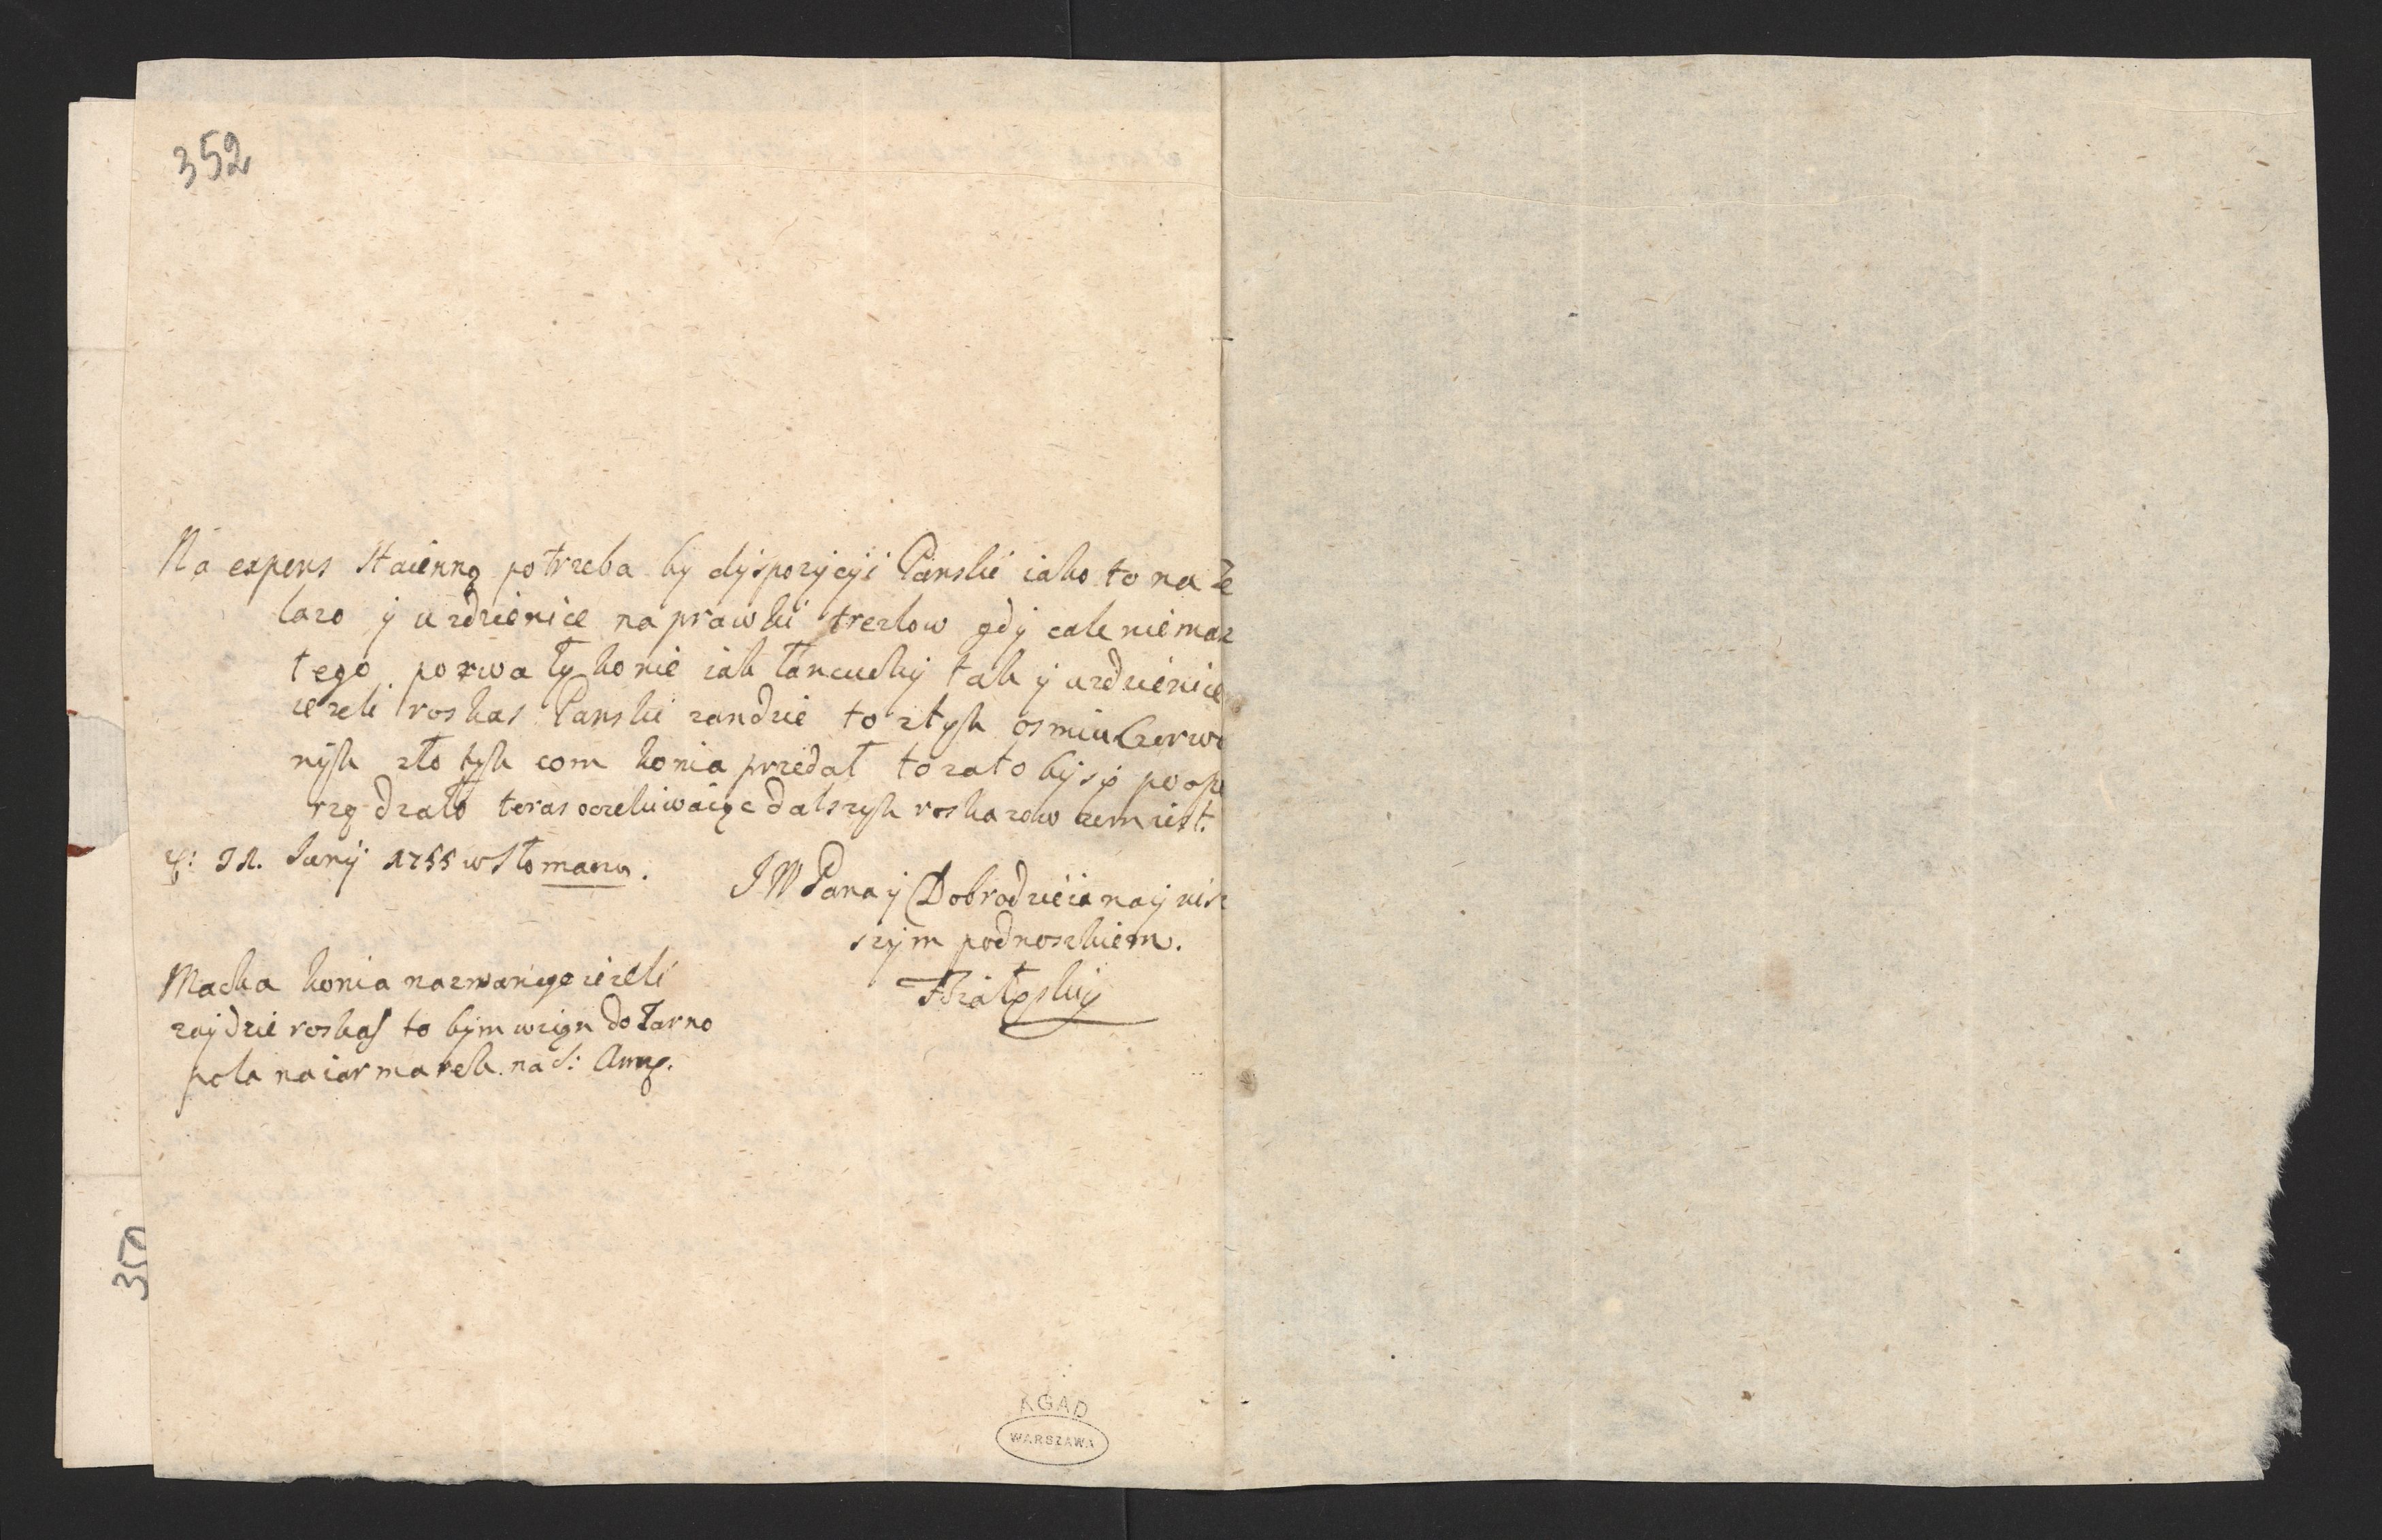 352
Na expens Staienną potrzeba by dyspozycyi Panski iako to na że
lazo y uzdzienice naprawki trezlow gdy cale niemasz
tego porwały konie iak łancuchy tak y uzdzienice
iezeli roskas Panski zandzie to z tych osmiu Czerwo
nych złotych com konia przedał to zato by się poopo
rządzało teras oczekiwaiąc dalszych roskazow zem iest.
1755 w Słomana.
J W Pana y Dobrodzieia naynisz
szym podnoszkiem.
Macka konia nazwanego iezeli
zaydzie roskas to bym wziąn do Tarno
pola na iarmarek na S: Annę.
350
AGAD
WARSZAWA